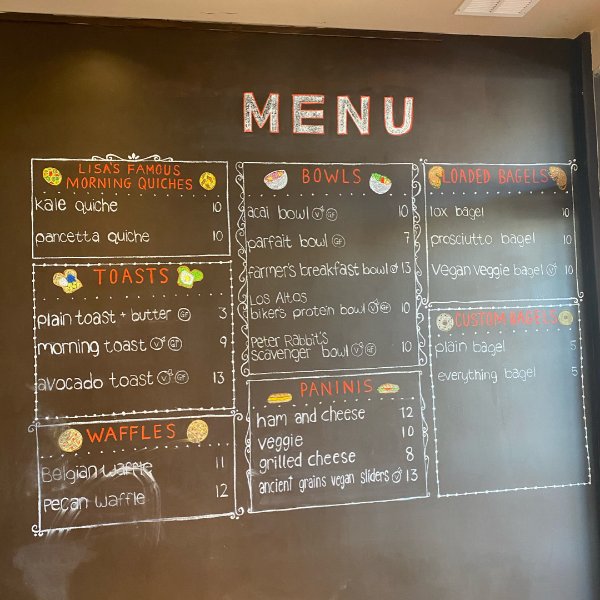 MENU
LISA'S FAMOUS
MORNING QUICHES
kale quiche 10
pancetta quiche 10
TOASTS
plain toast + butter GF 3
morning toast V GF 9
avocado toast V GF 13
WAFFLES
Belgian waffle 11
pecan waffle 12
BOWLS
acai bowl V GF 10
parfait bowl GF 7
farmer's breakfast bowl 13
Los Altos
biker's protein bowl V GF 10
Peter Rabbit's
scavenger bowl V GF 10
PANINIS
ham and cheese 12
veggie 10
grilled cheese 8
ancient grains vegan sliders V 13
LOADED BAGELS
lox bagel 10
prosciutto bagel 10
Vegan veggie bagel V 10
CUSTOM BAGELS
plain bagel 5
everything bagel 5